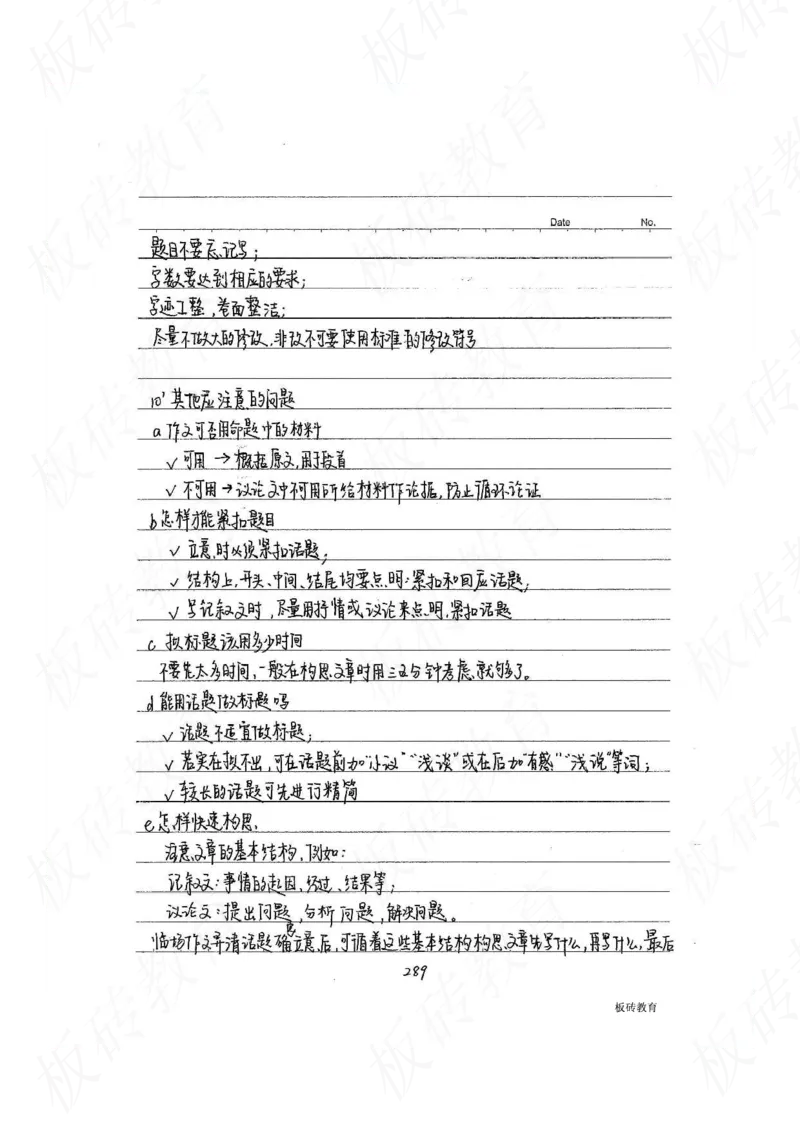 Date No.
题目不要忘记写；
字数要达到相应的要求；
字迹工整，卷面整洁；
尽量不做大的修改，非改不可要使用标准的修改符号
10' 其他应注意的问题
a 作文可否用命题中的材料
√ 可用 → 概括原文，用于段首
√ 不可用 → 议论文中不可用所给材料作论据，防止循环论证
b 怎样才能紧扣题目
√ 立意时必须紧扣话题；
√ 结构上，开头、中间、结尾均要点明、紧扣和回应话题；
√ 写记叙文时，尽量用抒情或议论来点明，紧扣话题
c 拟标题该用多少时间
不要先太多时间，一般在构思文章时用三五分钟考虑就够了。
d 能用话题做标题吗
√ 话题不适宜做标题；
√ 若实在拟不出，可在话题前加“小议”“浅谈”或在后加“有感”“浅说”等词；
√ 较长的话题可先进行精简
e 怎样快速构思
注意文章的基本结构，例如：
记叙文：事情的起因、经过、结果等；
议论文：提出问题，分析问题，解决问题。
临场作文弄清话题确立意后，可循着这些基本结构构思文章先写什么，再写什么，最后
289
板砖教育